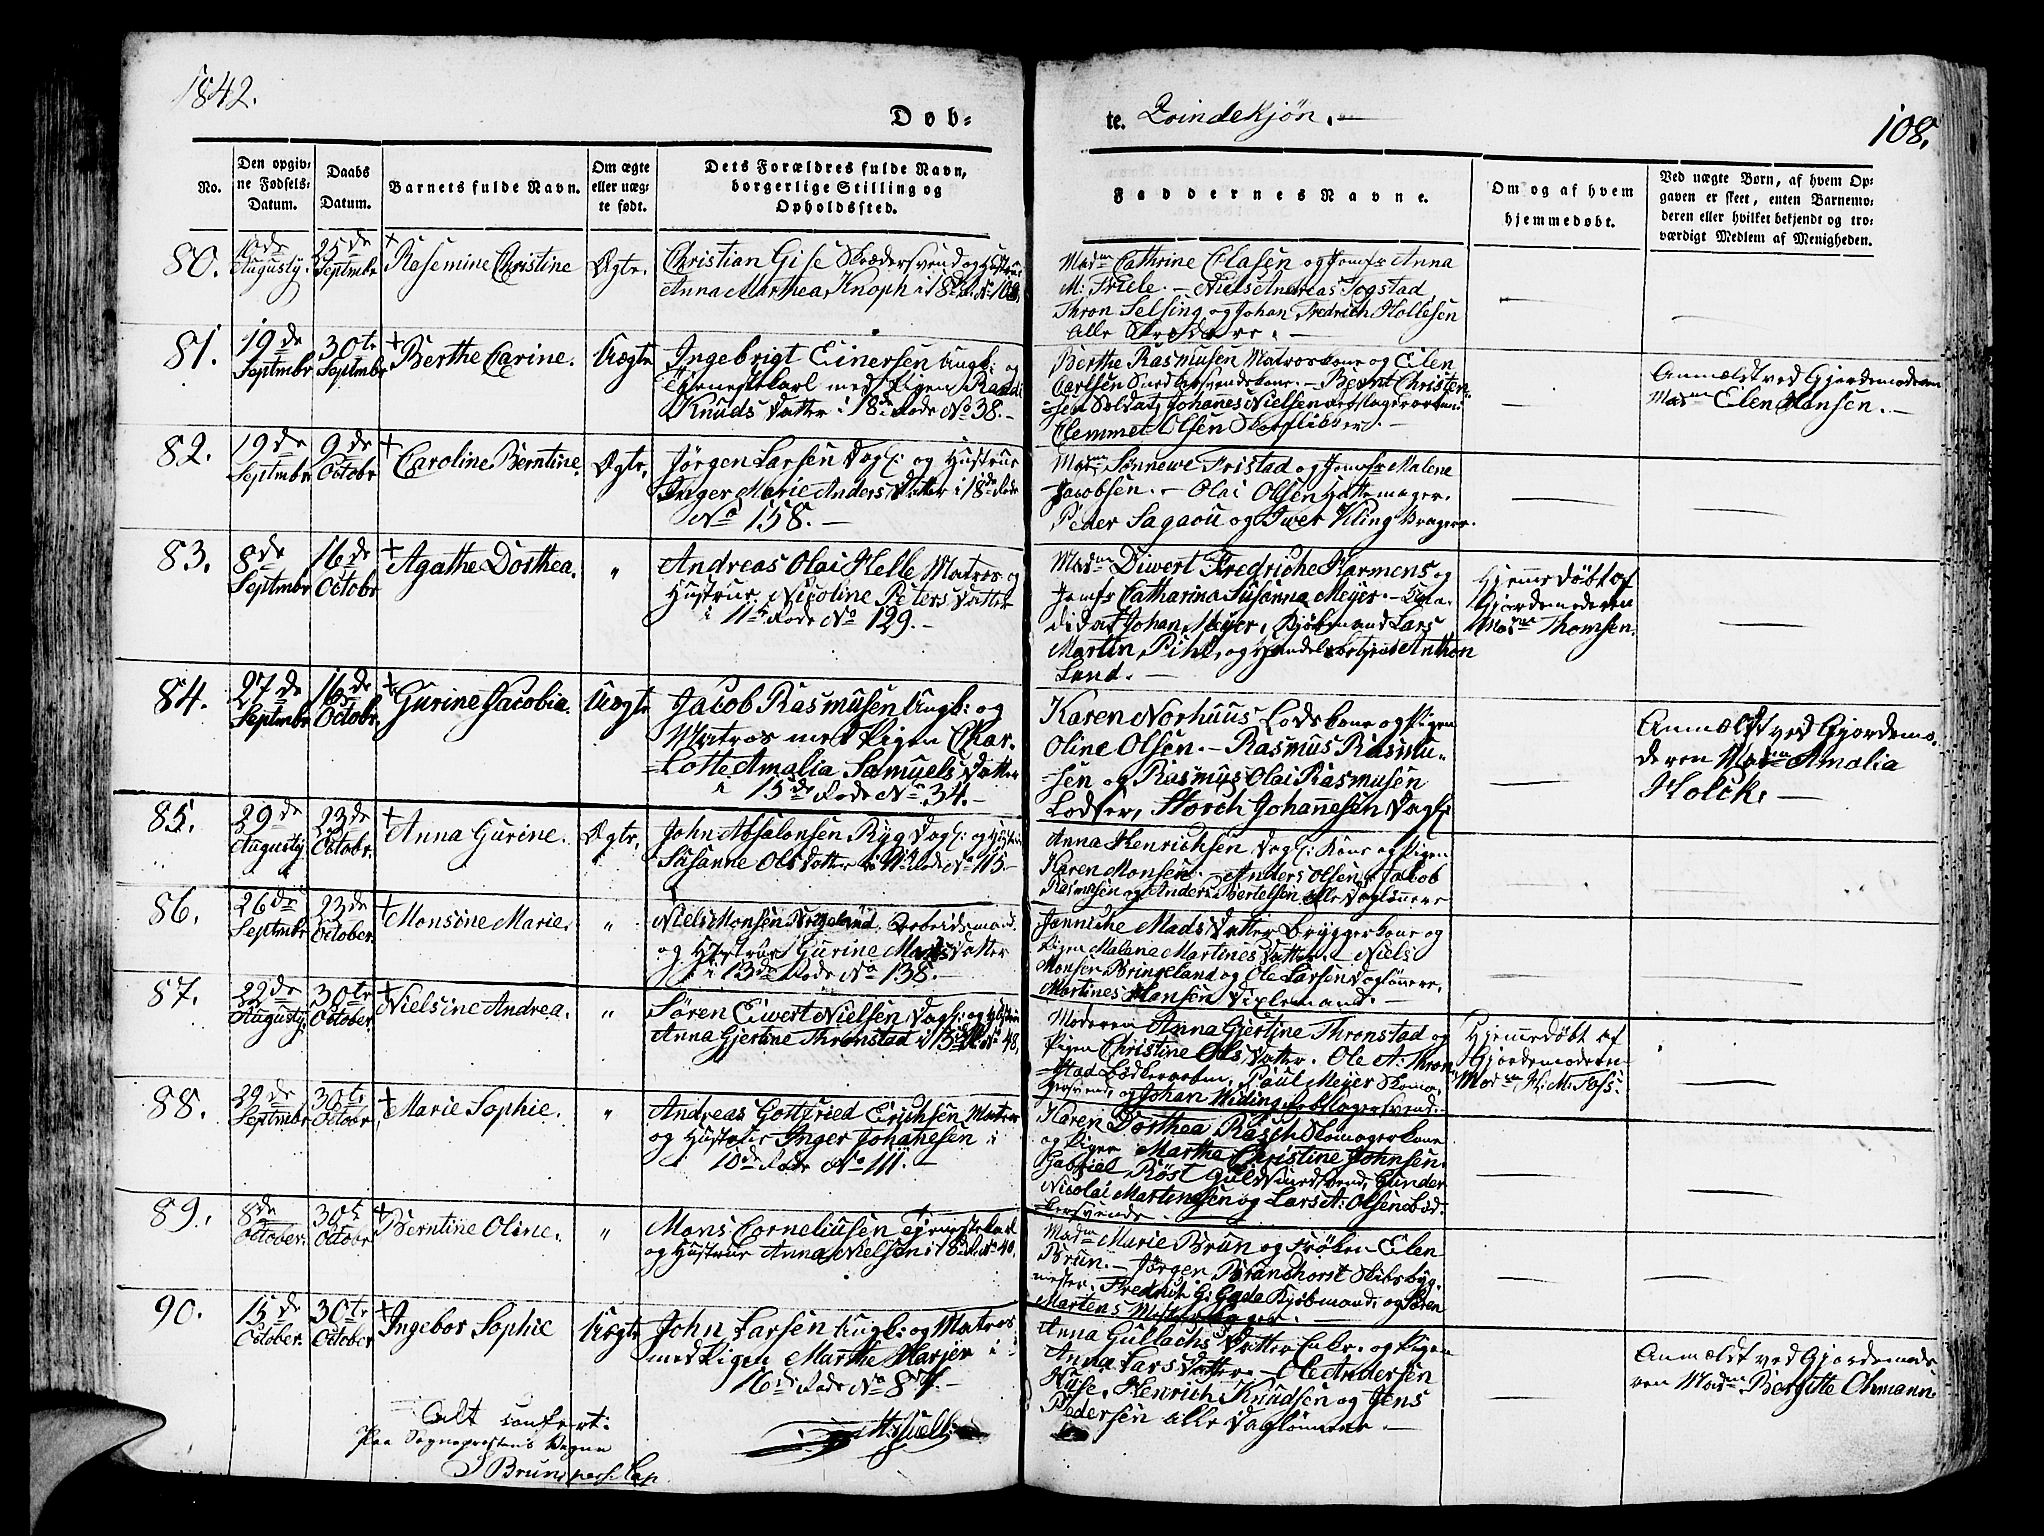 1842.
Døb-
te. Qvindekjøn.
108.
No.
Den opgiv-
ne Fødsels-
Datum.
Daabs
Datum.
Barnets fulde Navn.
Om ægte
eller uæg-
te født.
Dets Forældres fulde Navn,
borgerlige Stilling og
Opholdssted.
Faddernes Navne.
Om og af hvem
hjemmedøbt.
Ved uægte Børn, af hvem Op-
gaven er skeet, enten Barnemo-
deren eller hvilket bekjendt og tro-
værdigt Medlem af Menigheden.
80.
Augusty.
25de
Septmbr
+ Rasemine Christine
Ægte.
Christian Gise Skrædersvend og Hustrue
Anna Marthea Knoph i 18de
Madm Cathrine Clasen og Jomfr Anna
M: Friele. - Niels Andreas Sogstad
Thron Selsing og Johan Fredrich Hollesen
alle Skrædere.
81.
19de
Septmbr
30te
Septmbr
+ Berthe Carine.
Uægte
Ingebrigt Einersen Ungk: og
Tjenestekarl med Pigen
Knuds Datter i 18de Rode No 38.
Berthe Rasmusen Matroskone og Elen
Carlsen Smedesvendskone. - Bernt Christen-
sen Soldat, Johannes Nielsen
Clemmet Olsen Skoflikker.
Anmældt ved Gjordemoderen
Madm Elen Hansen.
82.
19de
Septmbr
9de
Octobr
+ Caroline Berntine.
Ægte,
Jørgen Larsen Dagl: og Hustrue
Inger Marie Anders Datter i 18de Rode
No 158.
Madm Sønnewe Fristad og Jomfr Malene
Jacobsen. - Olai Olsen Hattemager.
Peder Sagaou og Iwer Kling Dragere.
83.
8de
Septmbr
16de
Octobr
+ Agathe Dorthea.
"
Andreas Olai Helle Matros og
Hustrue Nicoline Peters Datter
i 11te Rode No 129.
Madm Diwert Fredriche Harmens og
Jomfr Catharina Susanna Meyer. - Can-
didat Johan Meyer, Kjøbmand Lars
Martin Pihl, og Handelsbetjent Anthon
Lund.
Hjemmedøbt af
Gjordemoderen
Madm Thomsen.
84.
27de
Septmbr
16de
Octobr.
+ Gurine Jacobia.
Uægte
Jacob Rasmusen Ungk: og
Matros med Pigen Char-
lotte Amalia Samuels Datter
i 15de Rode No 34.
Karen Norhuus Lodskone og Pigen
Oline Olsen. - Rasmus Rasmu-
sen og Rasmus Olai Rasmusen
Lodser, Storch Johannesen Dagl:
Anmældt ved Gjordemo-
deren Madm Amalia
Holck.
85.
29de
Augusty.
23de
Octobr.
+ Anna Gurine.
Ægte,
John Absalonsen Ryg Dagl: og Hustrue
Susanne Ols Datter i Rode No 115
Anna Henrichsen Dagl: Kone og Pigen
Karen Monsen. Anders Olsen, Jakob
Rasmusen og Anders Bertelsen alle Daglønnere
86.
26de
Septmbr
23de
October.
+ Monsine Marie.
"
Niels Monsen Arbeidsmand
og Hustrue Gurine Mads Datter
i 13de Rode No 138.
Jannike Mads Datter Bryggerkone og
Pigen Malene Martines Datter. Niels
Monsen Bringeland og Ole Larsen Daglønnere,
Martines Hansen
87.
29de
Augusty.
30te
October.
+ Nielsine Andrea.
"
Søren Eiwert Nielsen Dagl: og Hustrue
Anna Gjertine Thronstad i 13de R. No 48.
Moderen Anna Gjertine Thronstad og
Pigen Christine Ols Datter. Ole A. Thron-
stad Bødkersvend. Paul Meyer Skoma-
gersvend, og Johan Widing
Hjemmedøbt af
Gjordemoderen
Madm H: M: Foss:
88.
29de
Septmbr
30te
Octobr.
+ Marie Sophie.
"
Andreas Gotfried Erichsen Matros
og Hustrue Inger Johanesen i
10de Rode No 111.
Karen Dorthea Rasch Skomagerkone
og Pigen Marthe Christine Johnsen.
Gabriel Røst Guldsmedsvend, Gunder
Nicolai Martinesen og Lars A: Olsen Bød-
kersvende.
89.
8de
October.
30te
Octobr
+ Berntine Oline.
"
Mons Corneliusen Tjenestekarl
og Hustrue Anna Nielsen i 18 R. No 40.
Madm Marie Brun og Frøken Elen
Brun. - Jørgen Branshorst Skibsbyg-
mester. Fredrik G: Gada Kjøbmand, og Søren
Martens
90.
15de
October.
30te
October
+ Ingebor Sophie
Uægte
John Larsen Ungk: og Matros
med Pigen Marthe Harjer i
16de Rode No 87.
Anna Gullachs Datter Enke. og Pigen
Anna Lars Datter. Ole Andersen
Huse, Henrich Knudsen og Jens
Pedersen alle Daglønnere.
Anmældt ved Gjordemode-
ren Madm Bergitte Ohmann.
Alt confert:
Paa Sognepræstens Vegne
J Brun, pers: Cap